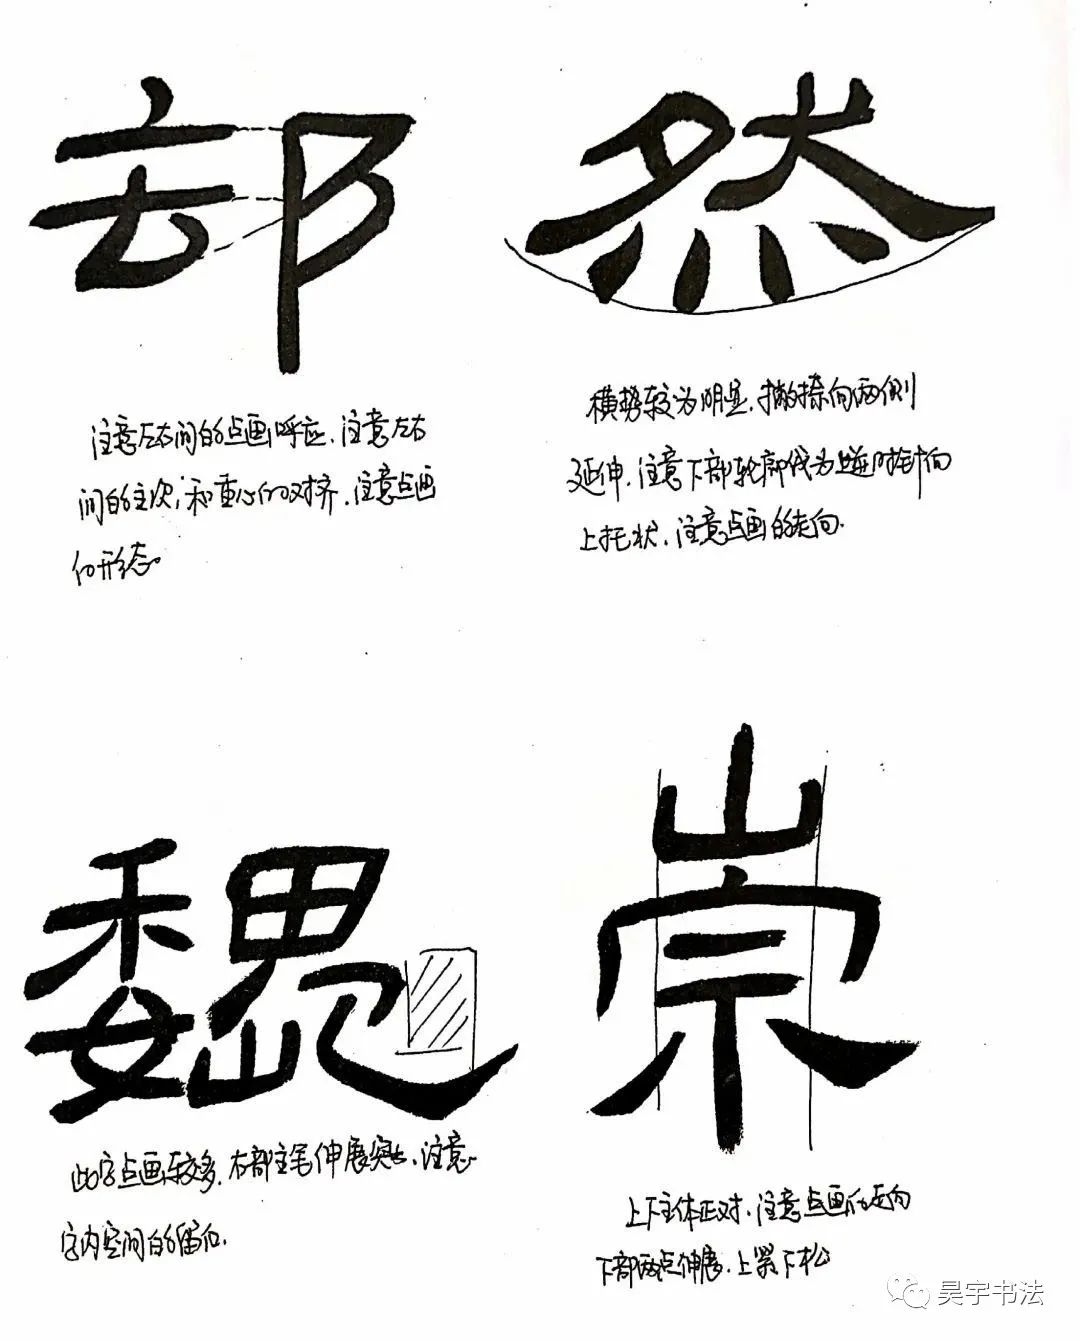 然
注意左右间的点画呼应、注意左右
间的主次,和重心的对齐、注意点画
的形态。
横势较为明显、撇捺向两侧
延伸、注意下部轮廓线为逆时针向
上托状、注意点画的走向.
魏
崇
此字点画较多、右部主笔伸展突出、注意
字内空间的留白.
上下主体正对、注意点画的走向
下部两点伸展、上紧下松
昊宇书法